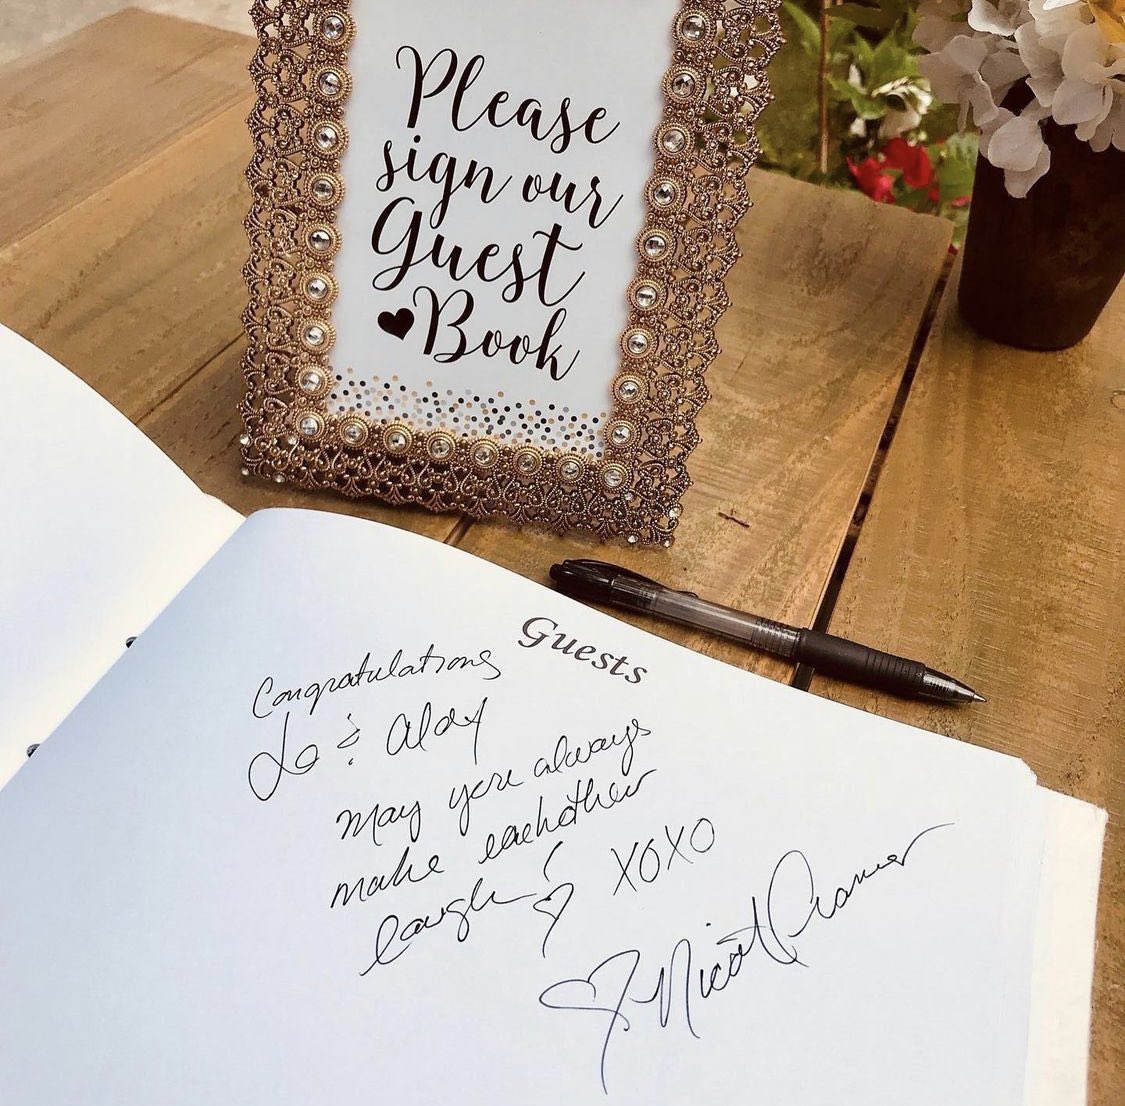 Please
sign our
Guest
Book
Guests
Congratulations
& Aldy
May you always
make eachother
laugh!
XOXO